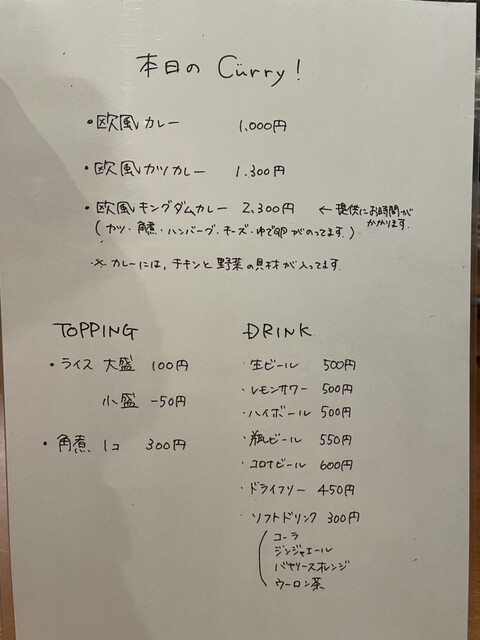 本日の Curry!
・欧風カレー 1,000円
・欧風カツカレー 1,300円
・欧風キングダムカレー 2,300円 ← 提供にお時間が
かかります。
(カツ・角煮・ハンバーグ・チーズ・ゆで卵がのってます。)
※ カレーには、チキンと野菜の具材が入ってます。
TOPPING
・ライス 大盛 100円
小盛 -50円
・角煮 1コ 300円
DRINK
・生ビール 500円
・レモンサワー 500円
・ハイボール 500円
・瓶ビール 550円
・コロナビール 600円
・ドライフリー 450円
・ソフトドリンク 300円
コーラ
ジンジャエール
バヤリースオレンジ
ウーロン茶